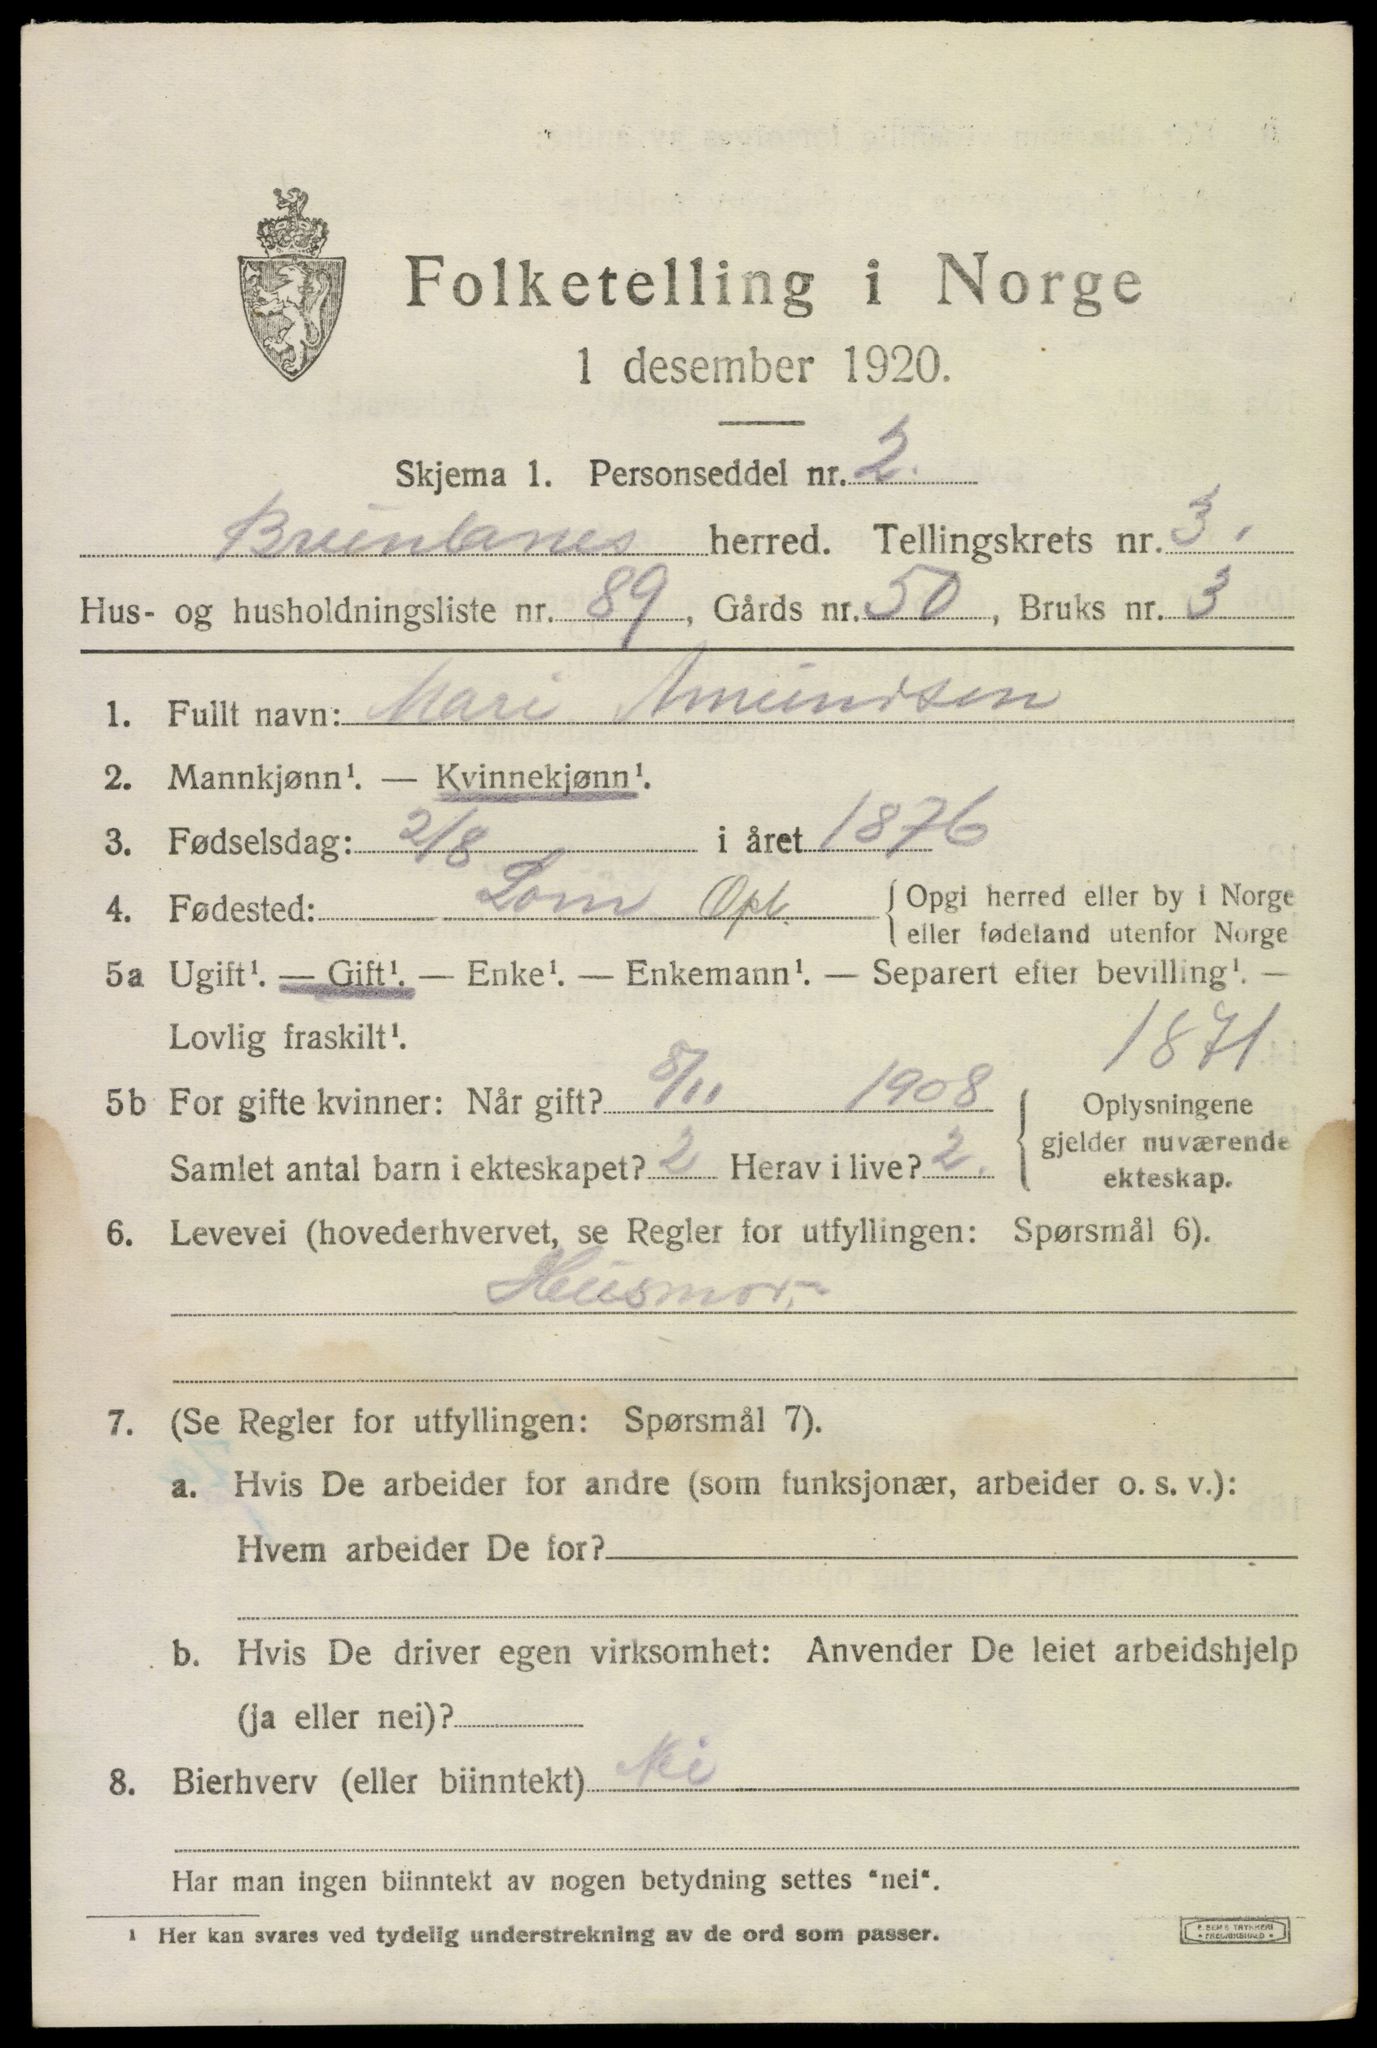 Folketelling i Norge
1 desember 1920.
Skjema 1. Personseddel nr. 2.
Brunlanes herred. Tellingskrets nr. 3.
Hus- og husholdningsliste nr. 89, Gårds nr. 50, Bruks nr. 3
1. Fullt navn: Mari Amundsen
2. Mannkjønn¹. — Kvinnekjønn¹.
3. Fødselsdag: 2/8 i året 1876
4. Fødested: Lom Opl. { Opgi herred eller by i Norge
eller fødeland utenfor Norge
5a Ugift¹. — Gift¹. — Enke¹. — Enkemann¹. — Separert efter bevilling¹. —
Lovlig fraskilt¹. 1871
5b For gifte kvinner: Når gift? 8/11 1908 { Oplysningene
gjelder nuværende
ekteskap.
Samlet antal barn i ekteskapet? 2 Herav i live? 2.
6. Levevei (hovederhvervet, se Regler for utfyllingen: Spørsmål 6).
Husmor.
7. (Se Regler for utfyllingen: Spørsmål 7).
a. Hvis De arbeider for andre (som funksjonær, arbeider o. s. v.):
Hvem arbeider De for?
b. Hvis De driver egen virksomhet: Anvender De leiet arbeidshjelp
(ja eller nei)?
8. Bierhverv (eller biinntekt) Nei
Har man ingen biinntekt av nogen betydning settes "nei".
¹ Her kan svares ved tydelig understrekning av de ord som passer.
E. SEM'S TRYKKERI
• FREDRIKSHALD •